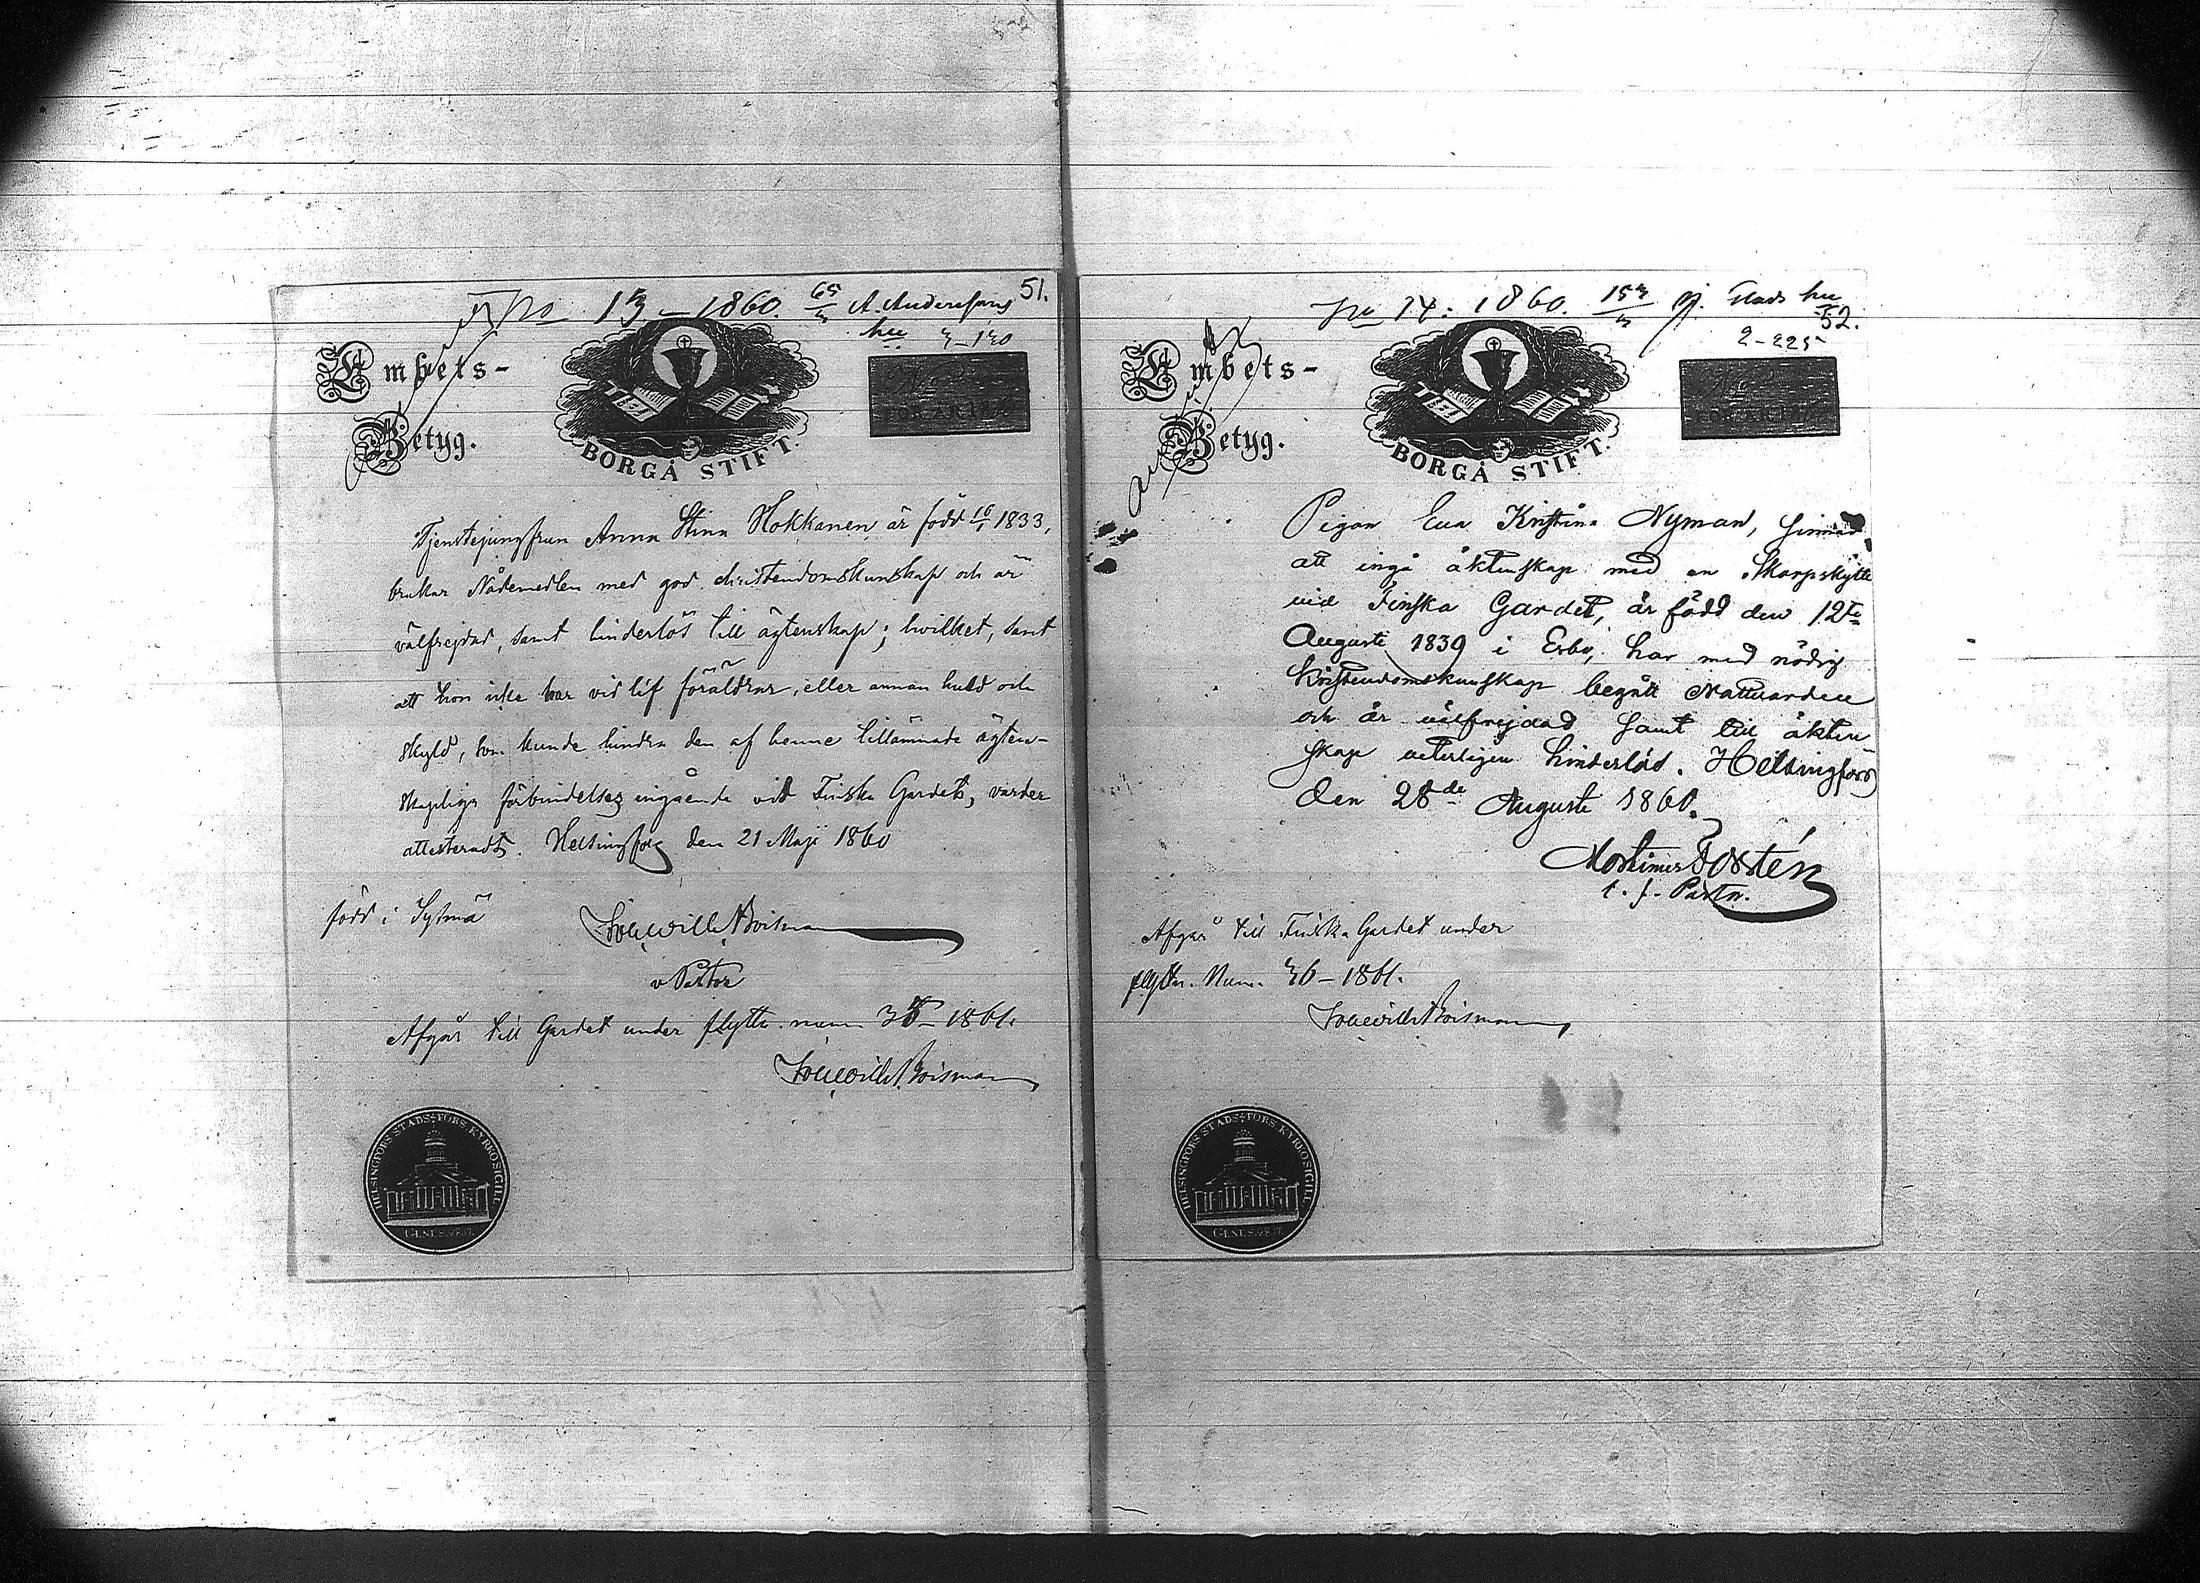 51.
No 13 - 1860. 65/3 A. Anderssons
hu 3-130
Embets-
Betyg.
BORGÅ STIFT.
Tjenstejungfrun Anna Stina Hokkanen är född 1833,
brukar Nådemedlen med god christendomskunskap och är
välfrejdad, samt hinderlös till ägtenskap; hvilket, samt
att hon icke har vid lif föräldrar, eller annan huld och
skyld, som kunde hindra den af henne tillämnade ägten-
skapliga förbindelses ingående vid Finska Gardet, varder
attesteradt. Helsingfors den 21 Maji 1860
född i Sysmä
v Pastor
Afgår till Gardet under flyttn. num 35 - 1861.
HELSINGFORS STADS FÖRS KYRKOSIGILL
No 14: 1860. 153/3 Stads hu
52.
2-225
Embets-
Betyg.
BORGÅ STIFT.
Pigan Eva Kristina Nyman, sinnad
att ingå äktenskap med en Skarpskytte
vid Finska Gardet, är född den 12te
Augusti 1839 i Esbo, har med nödig
kristendomskunskap begått Nattvarden
och är välfrejdad samt till äkten-
skap veterligen hinderlös. Helsingfors
den 28de Augusti 1860.
Mortimer Forstén
t. f. Pastor.
Afgår till Finska Gardet under
flyttn. Num. 36 - 1861.
HELSINGFORS STADS FÖRS KYRKOSIGILL